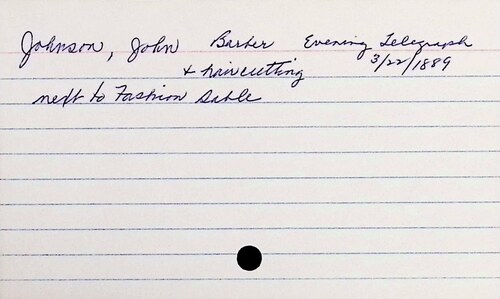 Johnson, John Barber Evening Telegraph
& haircutting 3/22/1889
next to Fashion Sable